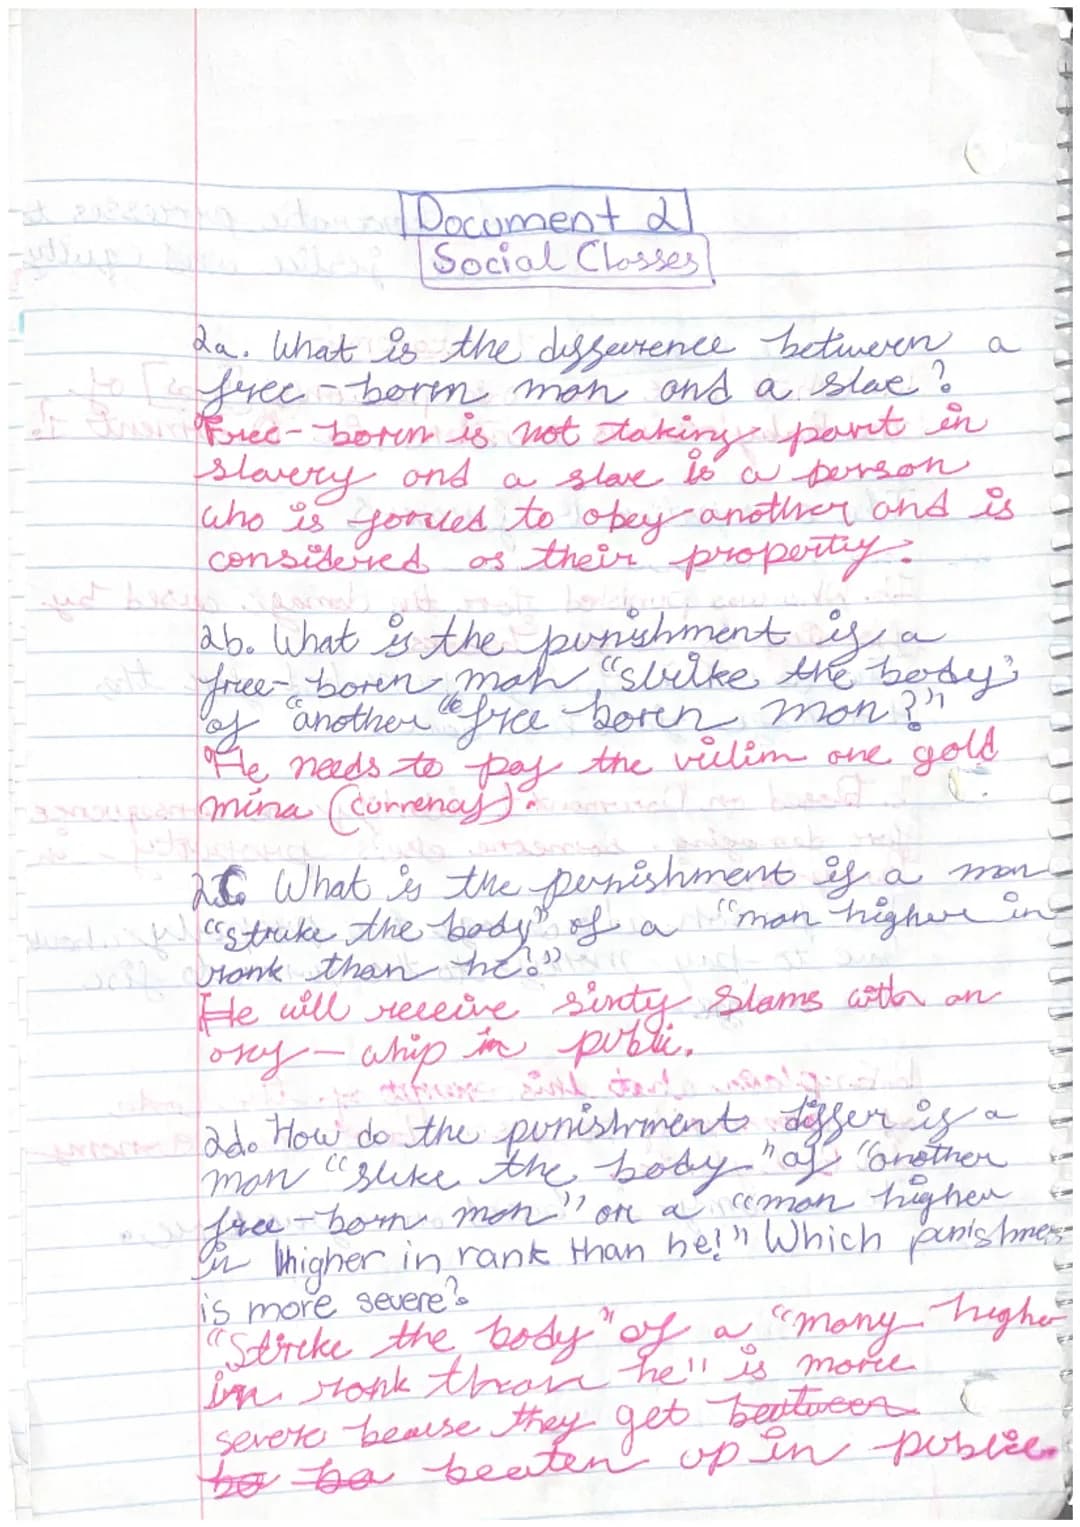 Document 2
Social Classes
2a. What is the difference between a
free-born man and a slae?
Free-born is not taking part in
slavery and a slae is a person
who is forced to obey another and is
considered as their property.
2b. What is the punishment if a
free-born man "strike the body"
of "another "free-born man?"
He needs to pay the victim one gold
mina (currency).
2C What is the punishment if a man
"struke the body" of a "man higher in
rank than he?"
He will receive sixty slams with an
oxy-whip in public.
2d. How do the punishment differ if a
man "strike the body" of "another
free-born man" or a "man higher
in higher in rank than he!" Which punishmen
is more severe?
"Strike the body" of a "many higher
in rank than he" is more
severe beause they get beatween
be be beaten up in public.